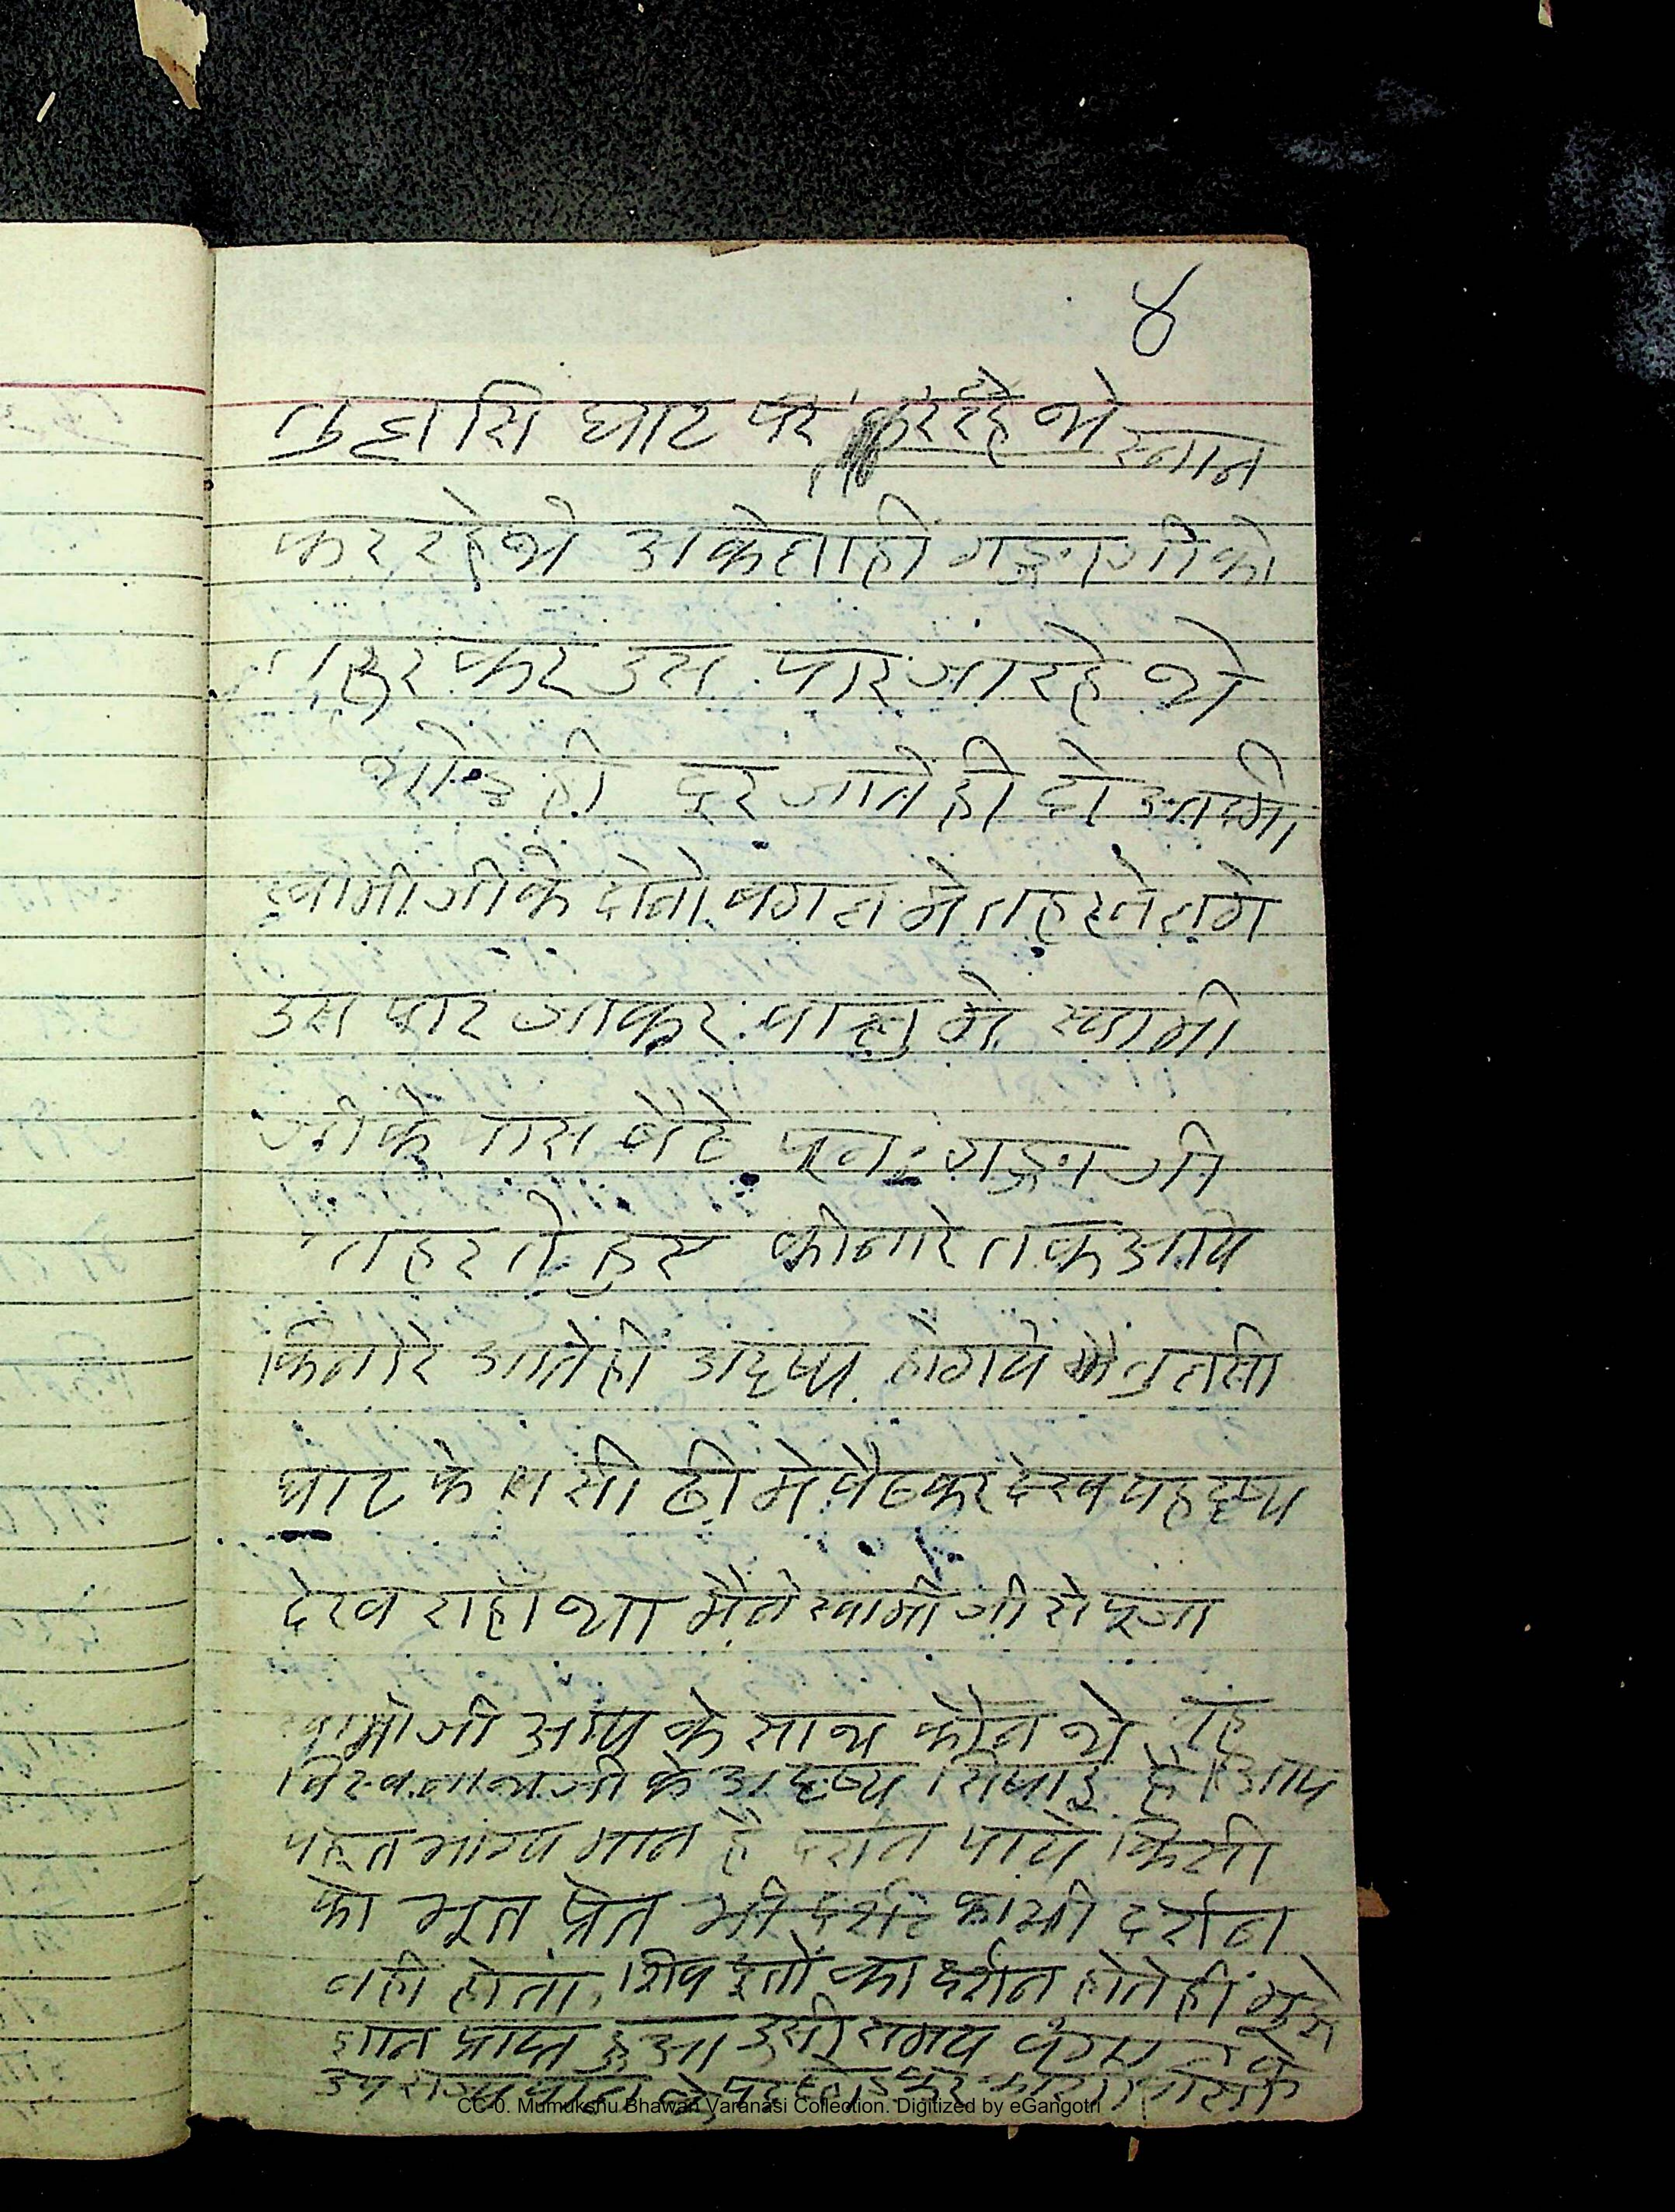 ४
तुलसि घाट पर कर रहे थे स्नान
कर रहे थे अकेला ही गङ्गाजी को
तहर कर उस पार जा रहे थे
थोडे ही दूर जाते ही दो आदमी
स्वामीजी के दोनो बगल मे तहरने लगे
उस पार जाकर बालु मे स्वामी
जी के पास बैठे पुनः गङ्गाजी
तहरते हुए कीनारे तक आये
किनारे आते ही अदृष्य होगये मै तुलसी
घाट के सीढी मे बैठकर देख यह दृष्य
देख राहा था मैने स्वामी जी से पूजा
स्वामीजी आप के साथ कौन थे यह
विस्वनाथजी के अदृष्य सिपाइ है। आप
बहुत भाग्य मान है दर्शन पाये किसी
को भूत प्रेत भी का भी दर्शन
नही होता, शिव दूतों का दर्शन होते हीं मुझे
ज्ञान प्राप्त हुआ उसी समय
CC-0. Mumukshu Bhawan Varanasi Collection. Digitized by eGangotri